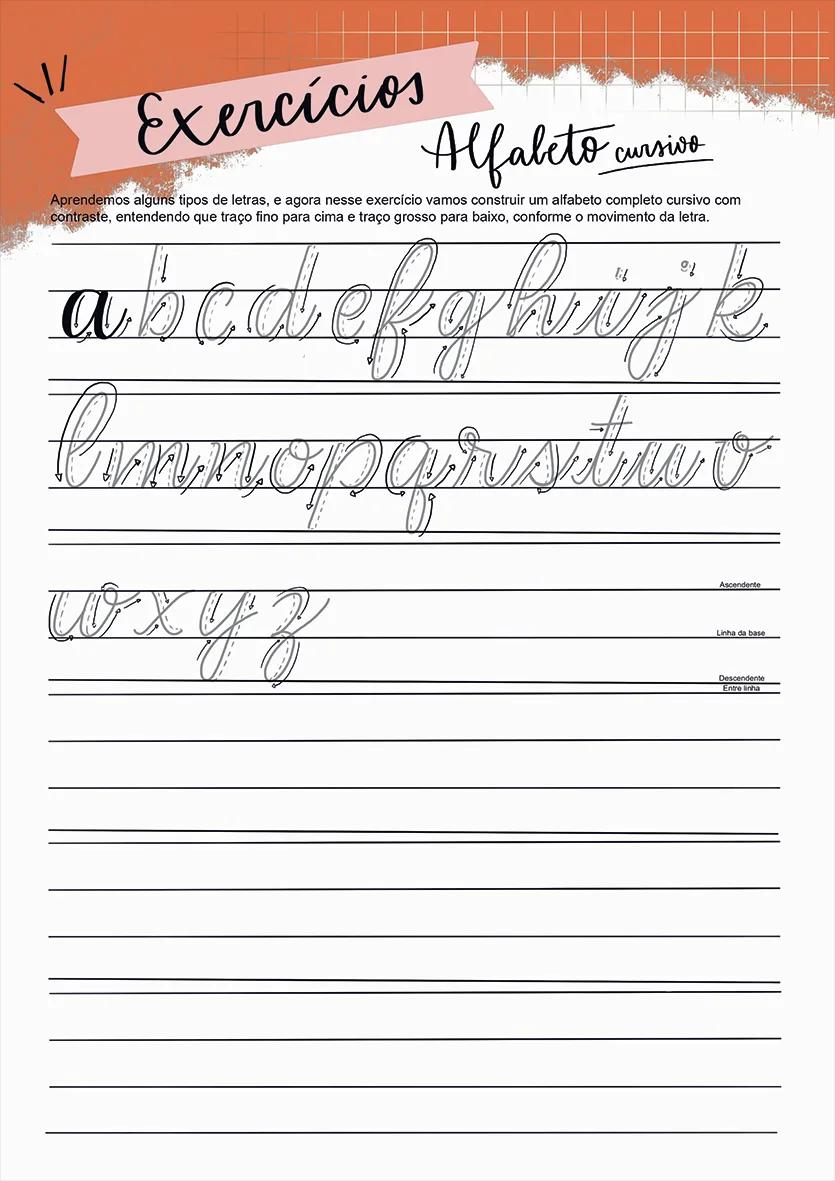 Exercícios
Alfabeto cursivo
Aprendemos alguns tipos de letras, e agora nesse exercício vamos construir um alfabeto completo cursivo com
contraste, entendendo que traço fino para cima e traço grosso para baixo, conforme o movimento da letra.
a b c d e f g h i j k
l m n o p q r s t u v
w x y z
Ascendente
Linha da base
Descendente
Entre linha